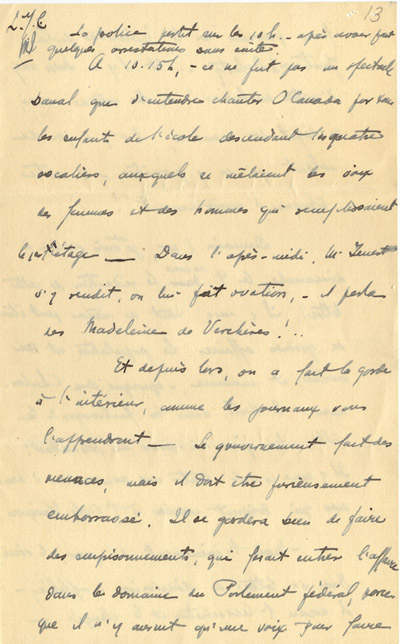 13
La police partit sur les 10 h. – après avoir fait
quelques arrestations sans suite.
A 10.15 h, – ce ne fut pas un spectacle
banal que d'entendre chanter O Canada par tous
les enfants de l'école descendant les quatre
escaliers, auxquels se mêlaient les voix
des femmes et des hommes qui remplissaient
le 1er étage — Dans l'après-midi, Mr
s'y rendit, on lui fit ovation, – il parla
des Madeleine de Verchères!..
Et depuis lors, on a fait la garde
à l'intérieur, comme les journaux vous
l'apprendront — Le gouvernement fait des
menaces, mais il doit être furieusement
embarrassé. Il se gardera bien de faire
des emprisonnements, qui ferait entrer l'affaire
dans le domaine du Parlement fédéral, parce
que il n'y aurait qu'une voix pour faire